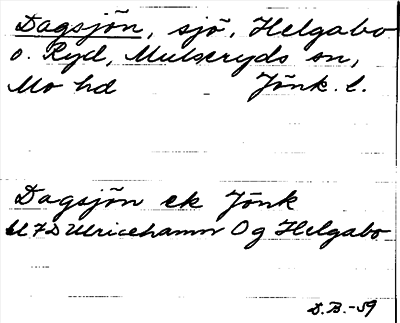 Dagsjön, sjö, Helgabo
o. Ryd, Mulseryds sn,
Mo hd Jönk. l.
Dagsjön ek Jönk
U 7 D Ulricehamn Og Helgabo
D.B.-59